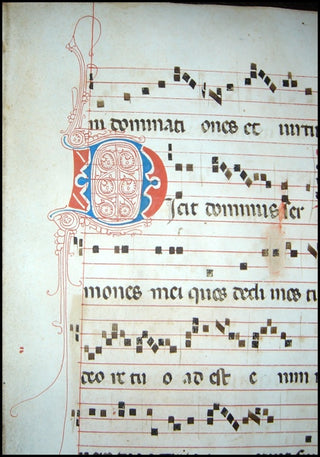 ni dominati ones et uirtu
Dicit dominus ser
mones mei quos dedi in os tu
de o re tu o ad est e nim